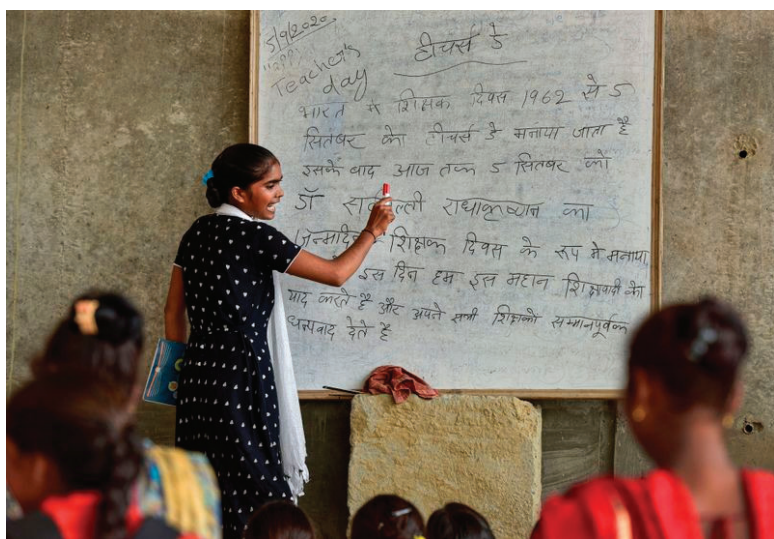 5/9/2020
Teacher's
day
टीचर्स डे
भारत में शिक्षक दिवस 1962 से 5
सितंबर को टीचर्स डे मनाया जाता है
इसके बाद आज तक 5 सितंबर को
डॉ राधाकृष्णन का
जन्मदिन शिक्षक दिवस के रूप मे मनाया
इस दिन हम इस महान शिक्षावादी को
याद करते है और अपने सभी शिक्षको सम्मानपूर्वक
धन्यवाद देते है